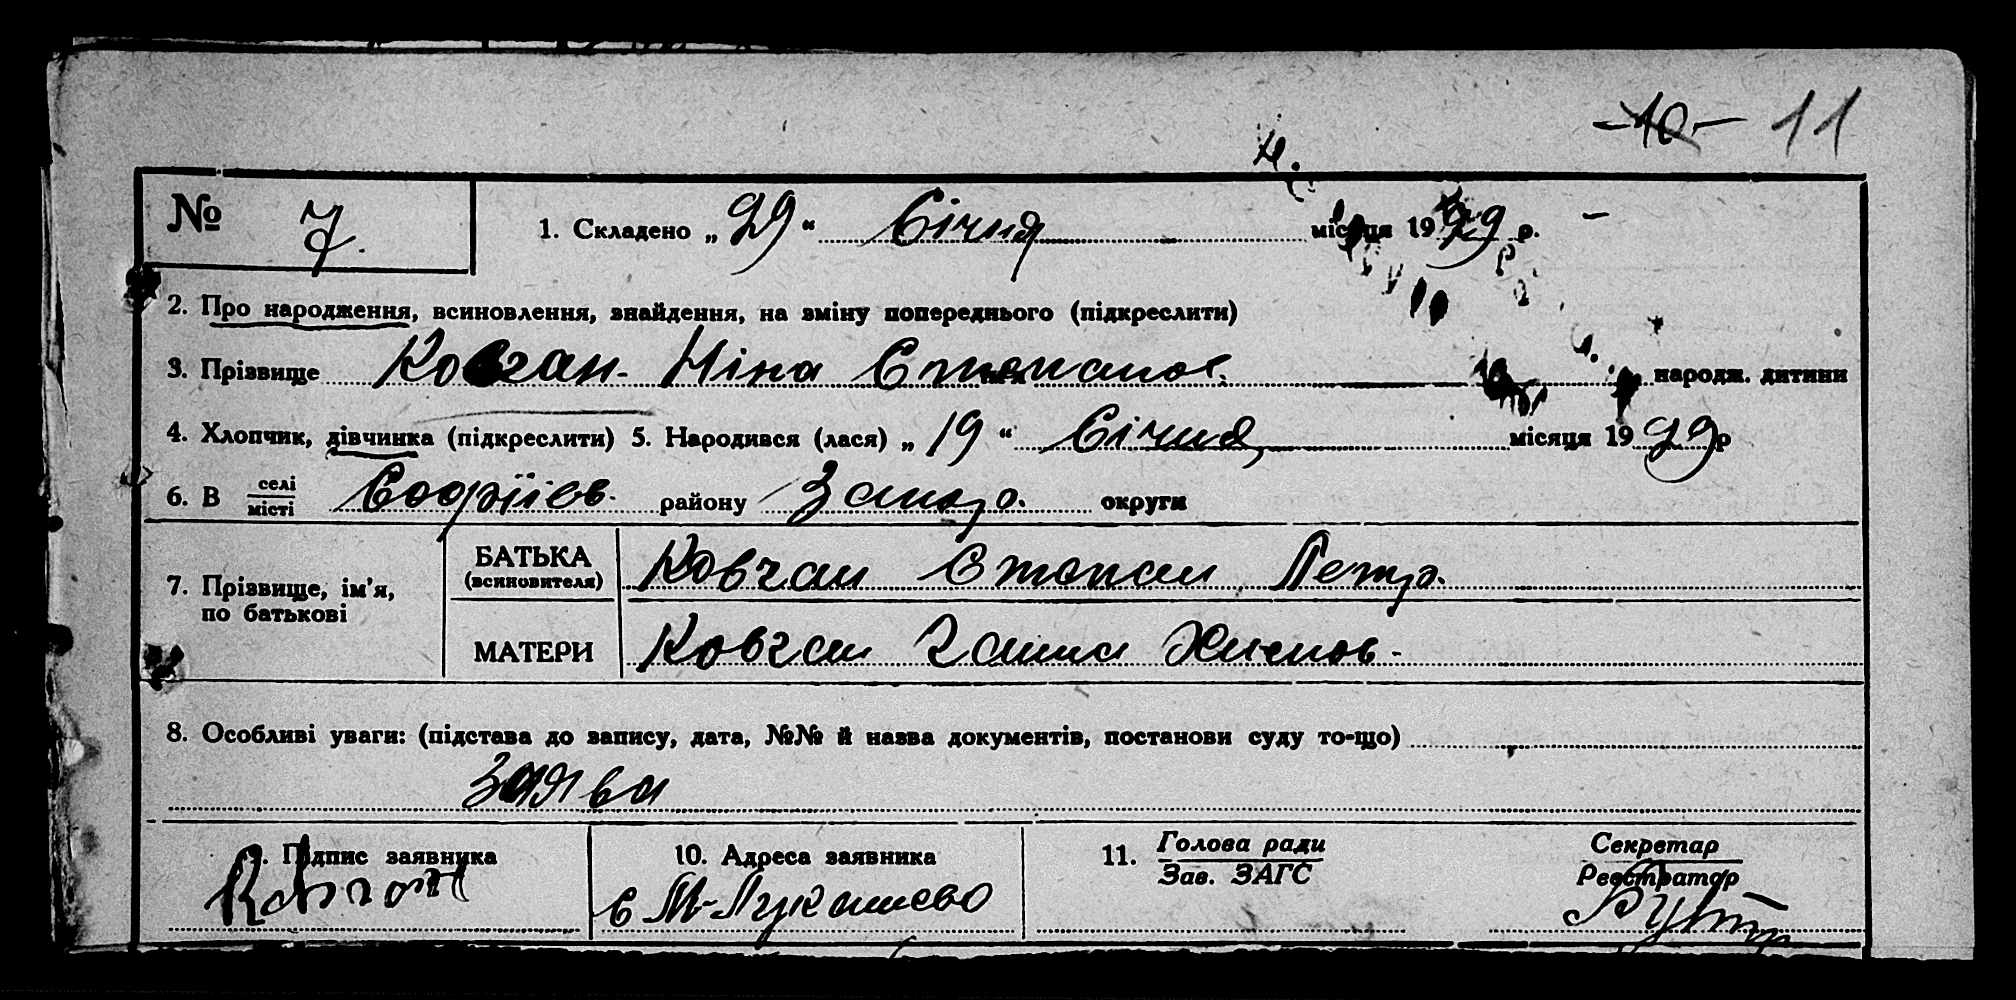 -10- 11
№ 7. 1. Складено „29“ Січня місяця 1929 р.
2. Про народження, всиновлення, знайдення, на зміну попереднього (підкреслити)
3. Прізвище Ковган Ніна Степанов. народж. дитини
4. Хлопчик, дівчинка (підкреслити) 5. Народився (лася) „19“ Січня місяця 1929 р
6. В селі місті Софіїев. району Запор. округи
7. Прізвище, ім'я, по батькові
БАТЬКА (всиновителя) Ковган Степан Петр.
МАТЕРИ Ковган Ганна
8. Особливі уваги: (підстава до запису, дата, №№ й назва документів, постанови суду то-що)
Заява
9. Підпис заявника 10. Адреса заявника 11. Голова ради Зав. ЗАГС Секретар Реєстратор
Ковган с М-Лукашево